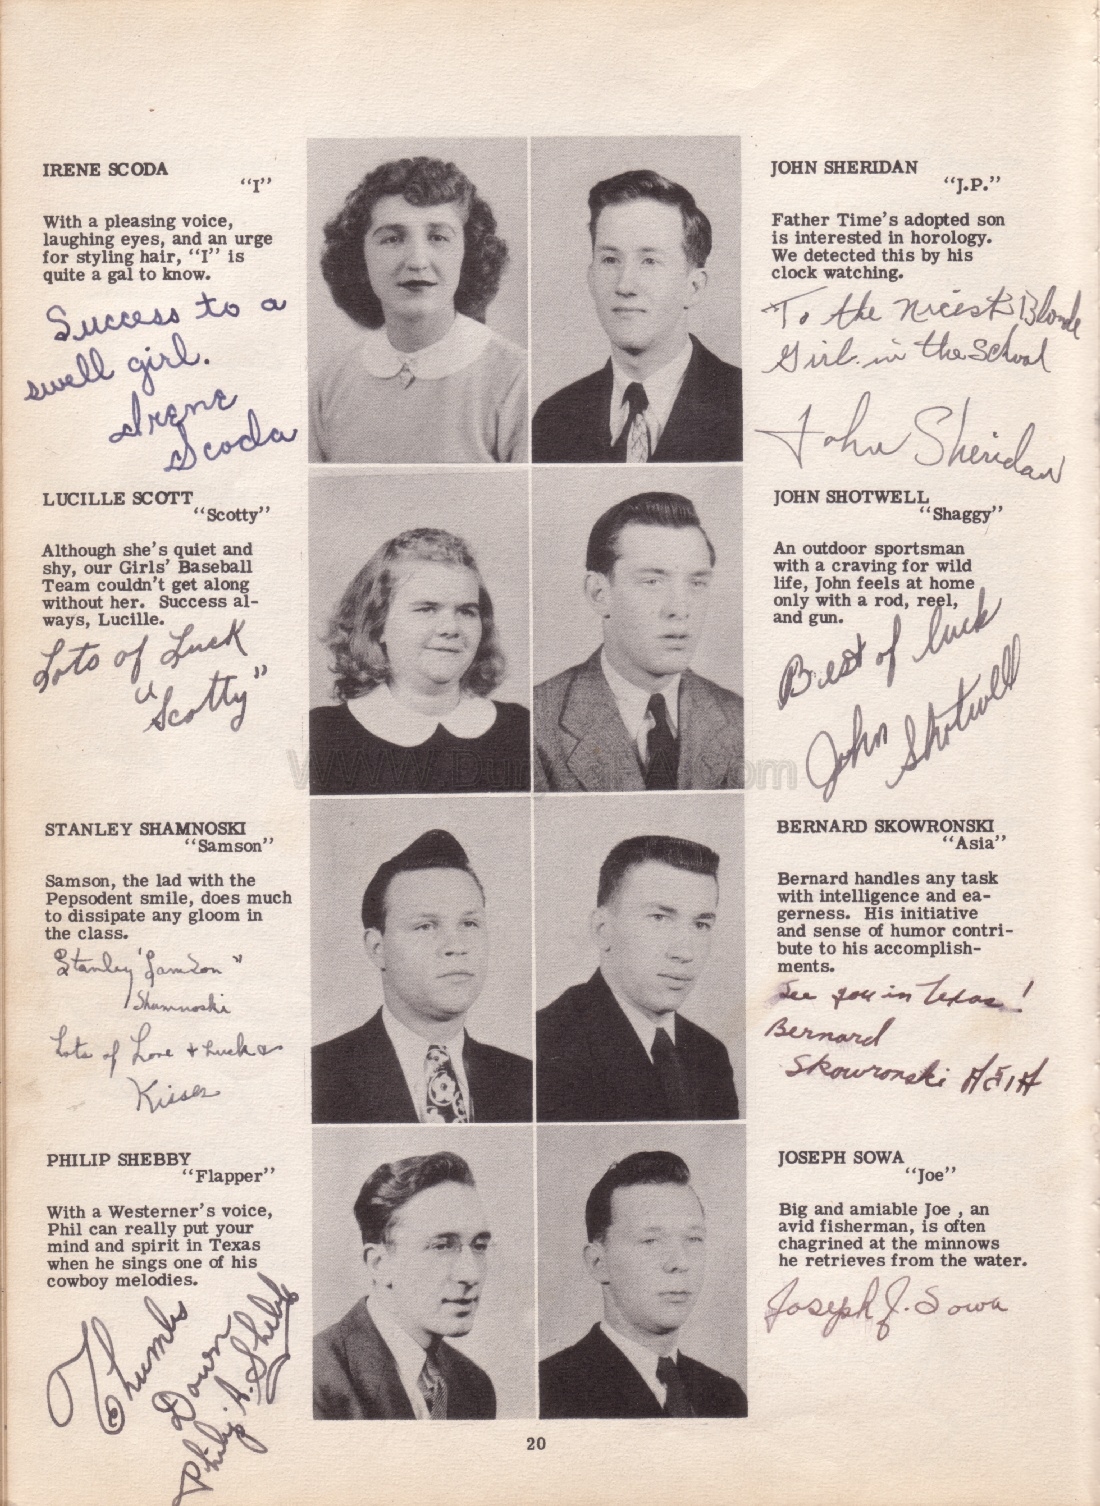 IRENE SCODA
"I"
With a pleasing voice,
laughing eyes, and an urge
for styling hair, "I" is
quite a gal to know.
Success to a
swell girl.
Irene
Scoda
LUCILLE SCOTT
"Scotty"
Although she's quiet and
shy, our Girls' Baseball
Team couldn't get along
without her. Success al-
ways, Lucille.
Lots of Luck
"Scotty"
STANLEY SHAMNOSKI
"Samson"
Samson, the lad with the
Pepsodent smile, does much
to dissipate any gloom in
the class.
Stanley "Samson"
Shamnoski
Lots of Love + Luck &
Kisses
PHILIP SHEBBY
"Flapper"
With a Westerner's voice,
Phil can really put your
mind and spirit in Texas
when he sings one of his
cowboy melodies.
Thumbs
Down
Philip A. Shebby
JOHN SHERIDAN
"J.P."
Father Time's adopted son
is interested in horology.
We detected this by his
clock watching.
To the nicest Blonde
Girl in the School
John Sheridan
JOHN SHOTWELL
"Shaggy"
An outdoor sportsman
with a craving for wild
life, John feels at home
only with a rod, reel,
and gun.
Best of luck
John Shotwell
BERNARD SKOWRONSKI
"Asia"
Bernard handles any task
with intelligence and ea-
gerness. His initiative
and sense of humor contri-
bute to his accomplish-
ments.
See you in Texas!
Bernard
Skowronski ASIA
JOSEPH SOWA
"Joe"
Big and amiable Joe , an
avid fisherman, is often
chagrined at the minnows
he retrieves from the water.
Joseph J. Sowa
20